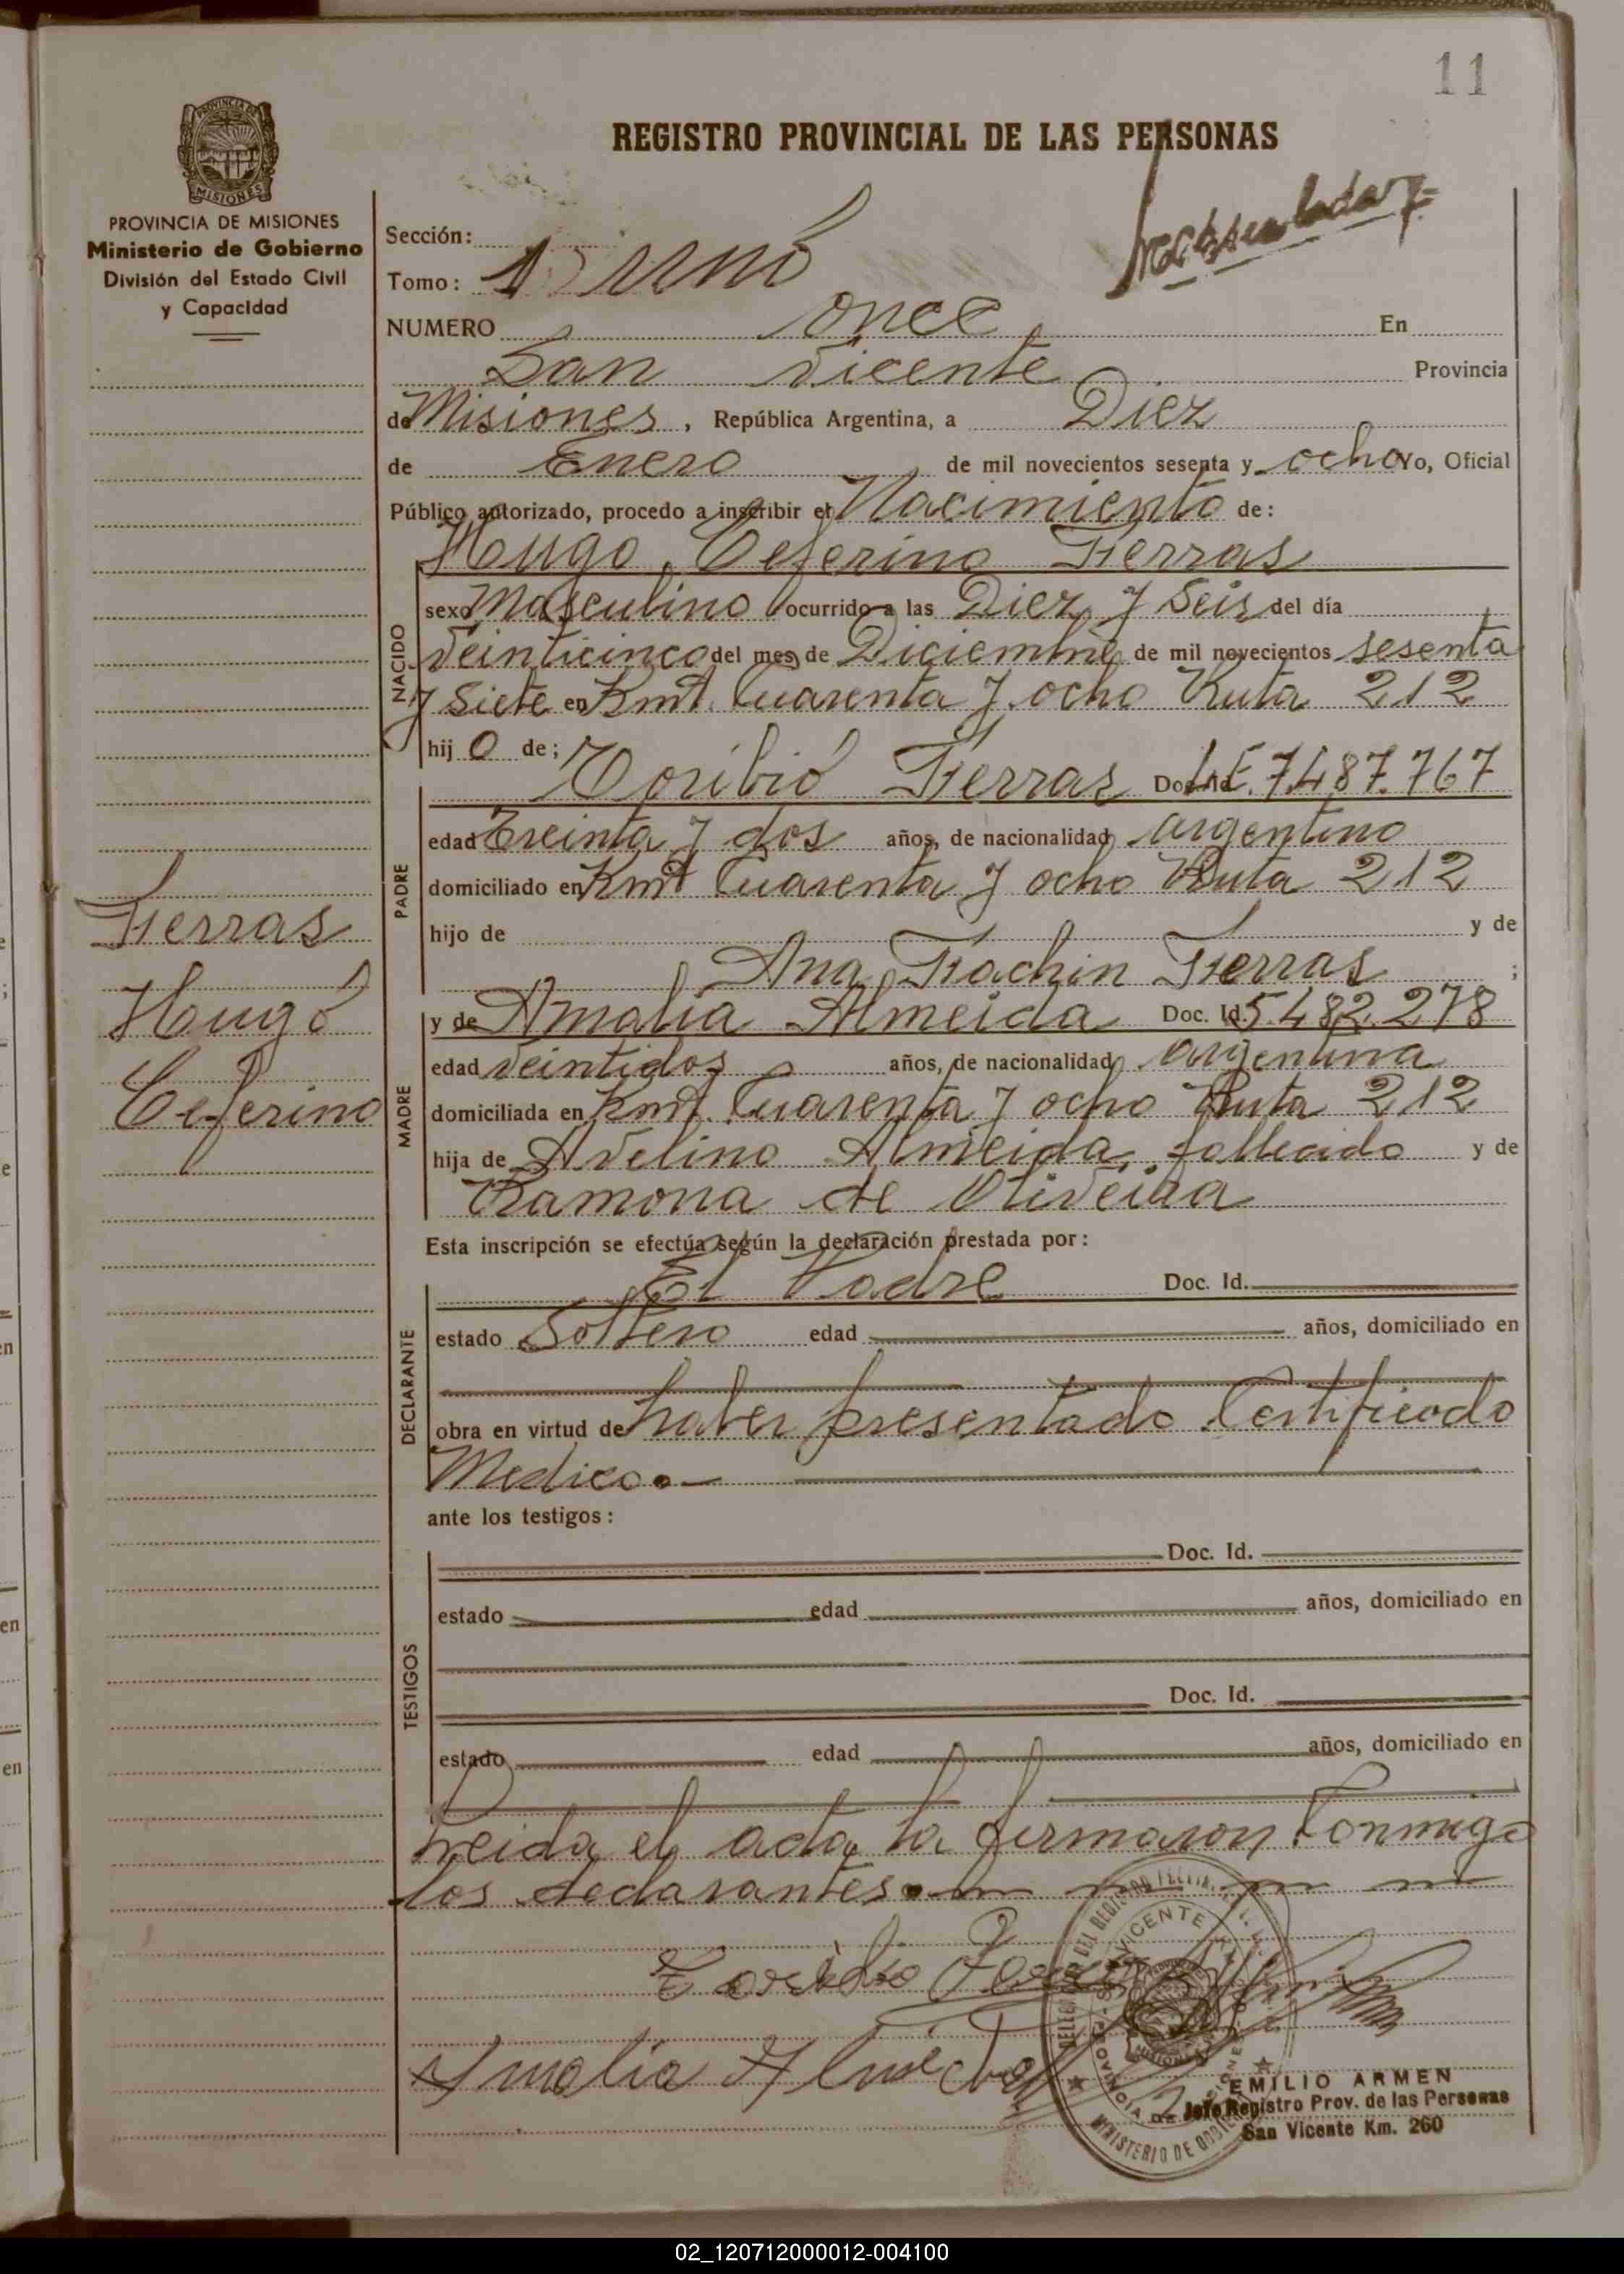 11
REGISTRO PROVINCIAL DE LAS PERSONAS
PROVINCIA DE
MISIONES
PROVINCIA DE MISIONES
Ministerio de Gobierno
División del Estado Civil
y Capacidad
Sección:
Tomo: 1
NUMERO once En
San Vicente Provincia
de Misiones, República Argentina, a Diez
de Enero de mil novecientos sesenta y ocho Yo, Oficial
Público autorizado, procedo a inscribir el Nacimiento de:
Hugo Ceferino Fierras
NACIDO
sexo Masculino ocurrido a las Diez y Seis del día
Veinticinco del mes de Diciembre de mil novecientos sesenta
y Siete en Kmt. Cuarenta y ocho Ruta 212
hijo de;
Toribio Fierras Doc. Id. L.E. 7.487.767
PADRE
edad Treinta y dos años, de nacionalidad argentino
domiciliado en Kmt Cuarenta y ocho Ruta 212
hijo de y de
Ana Fierras ;
Fierras
Hugo
Ceferino
MADRE
y de Amalia Almeida Doc. Id. 5.482.278
edad Veintidos años, de nacionalidad argentina
domiciliada en Kmt. Cuarenta y ocho Ruta 212
hija de Avelino Almeida, fallecido y de
Ramona de Oliveira
Esta inscripción se efectúa según la declaración prestada por:
DECLARANTE
El Padre Doc. Id.
estado Soltero edad años, domiciliado en
obra en virtud de haber presentado Certificado
Medico.-
ante los testigos:
TESTIGOS
Doc. Id.
estado edad años, domiciliado en
Doc. Id.
estado edad años, domiciliado en
Leida el acta la firmaron Conmigo
los declarantes.
Toribio
Amalia Almeida
EMILIO ARMEN
Jefe Registro Prov. de las Personas
San Vicente Km. 260
02_120712000012-004100